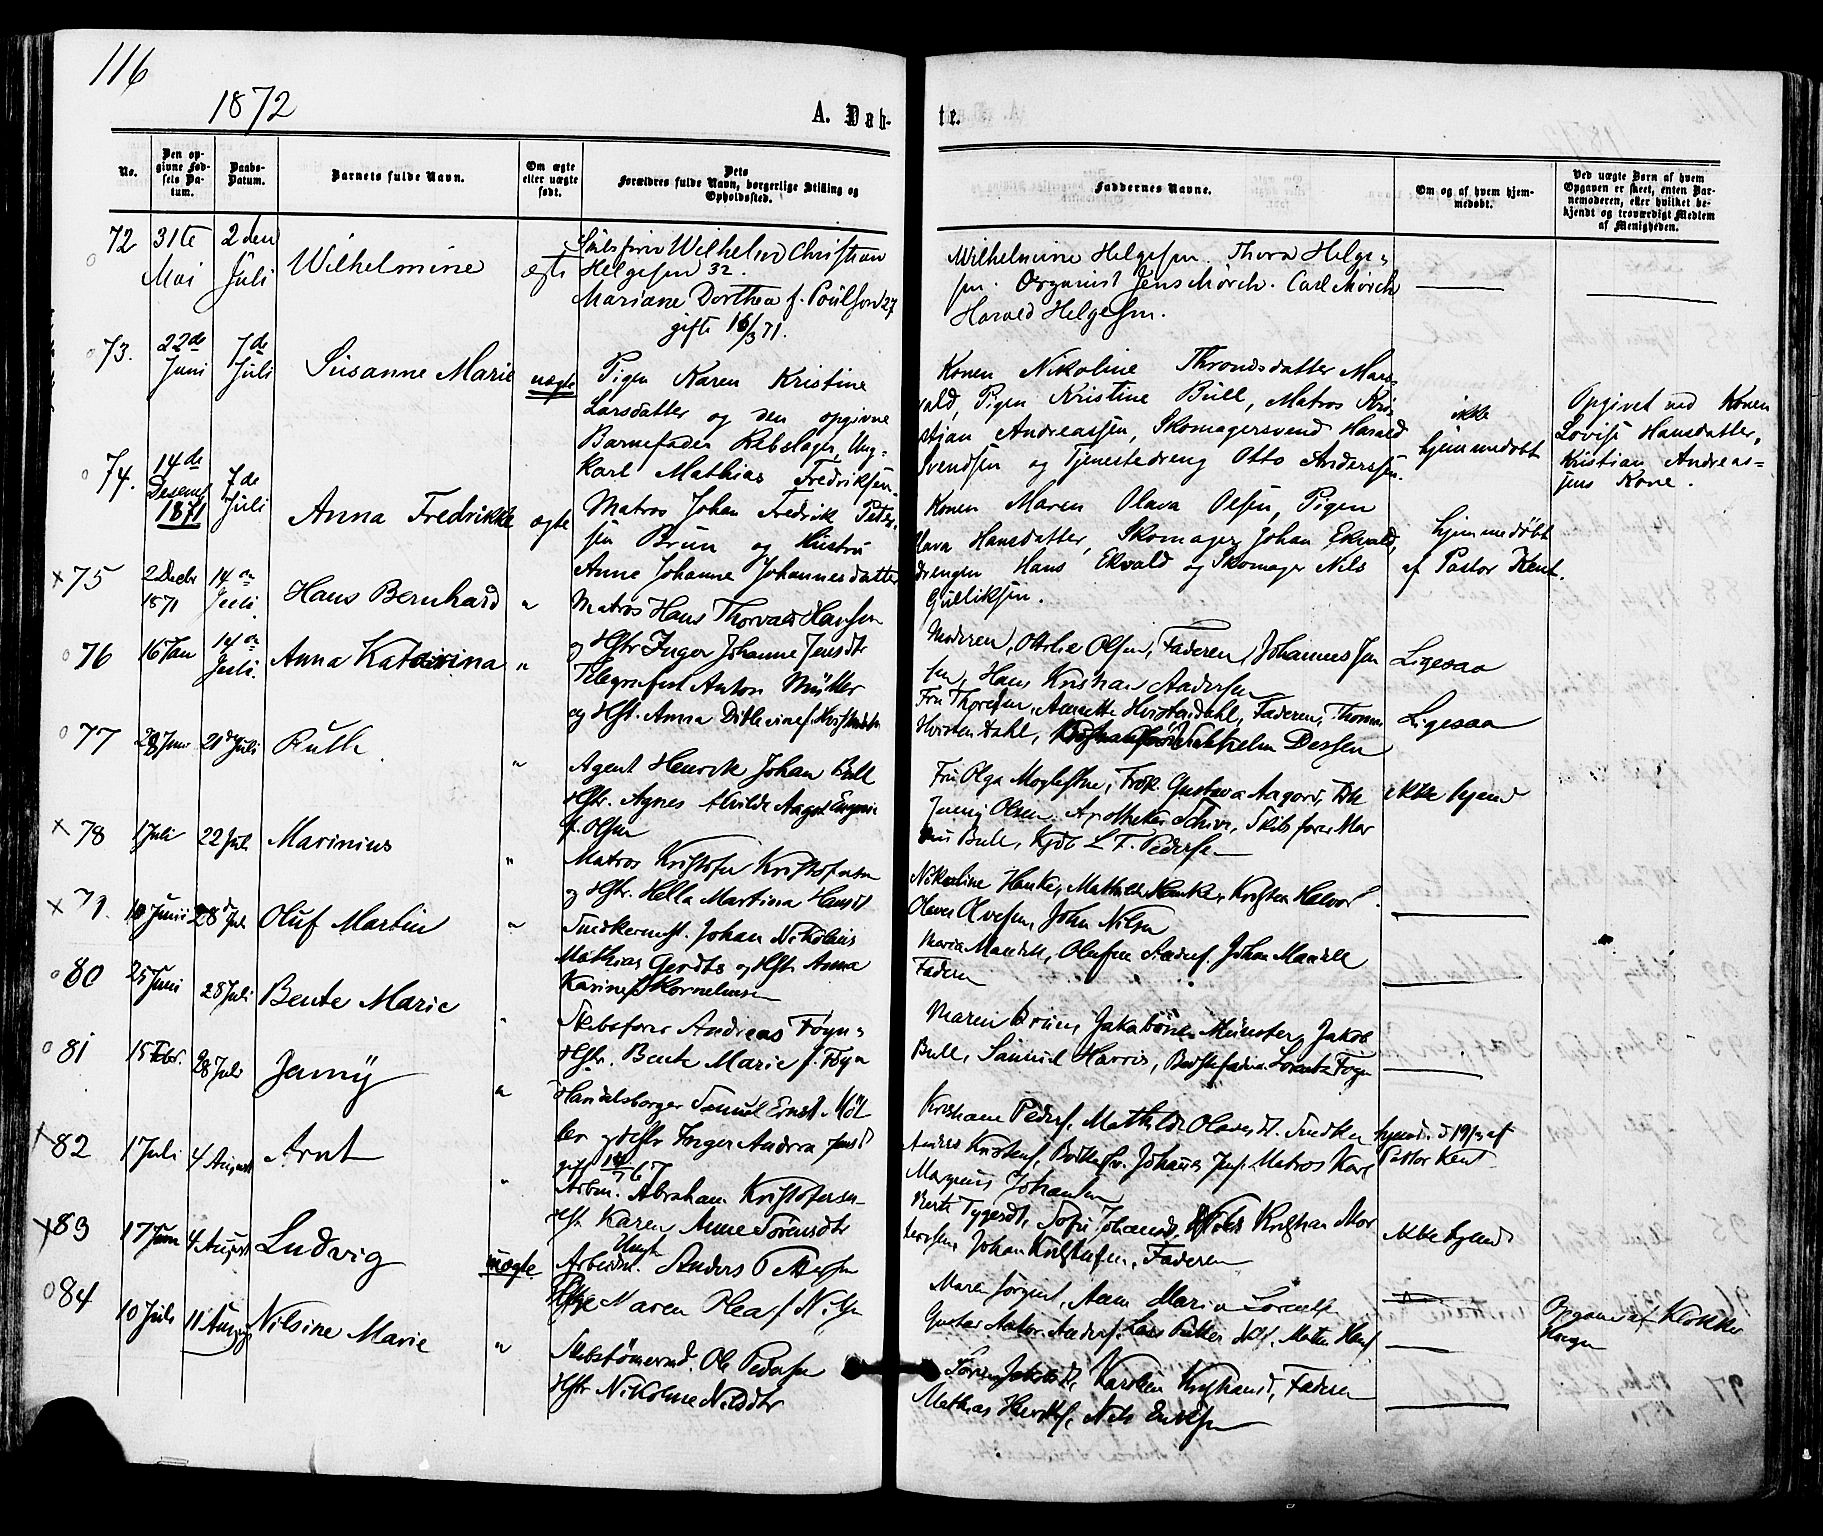 116
1872
A. Døb-
te.
No.
Den op-
givne Fød-
sels Da-
tum.
Daabs-
Datum.
Barnets fulde Navn.
Om ægte
eller uægte
født.
Dets
Forældres fulde Navn, borgerlige Stilling og
Opholdssted.
Faddernes Navne.
Om og af hvem hjem-
medøbt.
Ved uægte Børn af hvem
Opgaven er skeet, enten Bar-
nemoderen, eller hvilket be-
kjendt og troværdigt Medlem
af Menigheden.
72 31te Mai 2den Juli Wilhelmine ægte
Wilhelm Christian
Helgesen 32.
Mariane Dorthea f. Poulson 27
gifte 16/3 71.
Wilhelmine Helgesen. Thora Helge-
sen. Organist Jens Mörch. Carl Mörch
Harald Helgesen.
73. 22de Juni 7de Juli Susanne Marie uægte
Pigen Karen Kristine
Larsdatter og den opgivne
Barnefader Rebslager, Ung-
karl Mathias Fredriksen.
Konen Nikoline Throndsdatter
Pigen Kristine Bull, Matros Kri-
stjan Andreassen, Skomagersvend Harald
Svendsen og Tjenestedreng Otto Anderssen.
ikke
hjemmedøbt
Opgivet ved Konen
Lovise Hansdatter,
Kristian Andreas-
sens Kone.
74. 14de Desemb 1871 7de Juli Anna Fredrikke ægte
Matros Johan Fredrik Peter-
sen Brun og Hustru
Anne Johanne Johannesdatter
Konen Maren Olava Olsen, Pigen
Hansdatter, Skomager Johan Ekvald,
drengen Hans Ekvald og Skomager Nils
Gulliksen.
hjemmedøbt
af Pastor Kent.
75 2 Decbr 1871 14de Juli Hans Bernhard "
Matros Hans Thorvald Hansen
og Hstr Inger Johanne Jensdtr
Moderen, Ottilie Olsen, Faderen, Johannes Jen
sen, Hans Kristian Andersen
Ligesaa
76 16 Jan 14de Juli. Anna Katarina "
Telegrafist Anton Müller
og Hst. Anna
Fru Thoresen, Annette Hvistendahl, Faderen, Thomas
Hvistendahl, Dessen
Ligesaa
77 28 Juni 21de Juli Ruth "
Agent Henrik Johan Bull
Hstr. Agnes Alvilde
f. Olsen
Fru Olga Mogestue, Frøk. Gustava Aagaard, Frk
Jenny Olsen. Apotheker Skibsfører
Bull, L. F. Pedersen
ikke hjemd
78 1 Juli 22 Juli Marinius "
Matros Kristofer Kristofersen
og Hstr. Hella Martina Hansdt
Nikoline Hanke, Mathilde Hanke, Kristen Halvors.
Olaves Olvesen, John Nilsen
79. 10 Juni 28de Juli Oluf Martin "
Snedkermst. Johan Nikolaus
Mathias Gerdts og Hstr Anna
Karine f. Kornelius
Maria Mandell, Johan Mandell
Faderen
80 25 Juni 28 Juli Bente Marie "
Skibsfører Andreas Føyn,
Hstr. Bente Marie f. Føyn
Maren Bruun, Münsterg Jakob
Bull, Samuel Harris, Bedstefaderen Lorentz Foyn
81 15 Febr. 28 Juli Jenny "
Handelsborger Samuel Ernst Møl
ler og Hstr Inger Andrea
gift 14/7 67
Kristiane Peders. Mathilde Olavesdt. Snedker
Johannes Jens. Matros Karl
Marinus Johansen
hjemd. d 19/3 af
Pastor Kent.
82 1 Juli 4 August Arnt "
Arbm. Abraham Kristofersen
Hst. Karen Anne Sørensdtr
Sofie Johansd, Kristian Mor
tensen, Johan Kristofersen, Faderen
ikke hjemd
83 17 Juni 4 August Ludvig uægte
Ungk
Arbeidsm. Anders Pettersen
Pige Maren Olea f. Nilsen
Maren Anne Maria Lorents
84 10 Juli 11 Aug Nilsine Marie "
Skibstømermd. Ole Pedersen
Hstr Nikoline Nilsdtr
Karoline Kristiansd, Faderen
Mathias Henriks, Nils Eriksen
Opgave af Klokker
Haugen